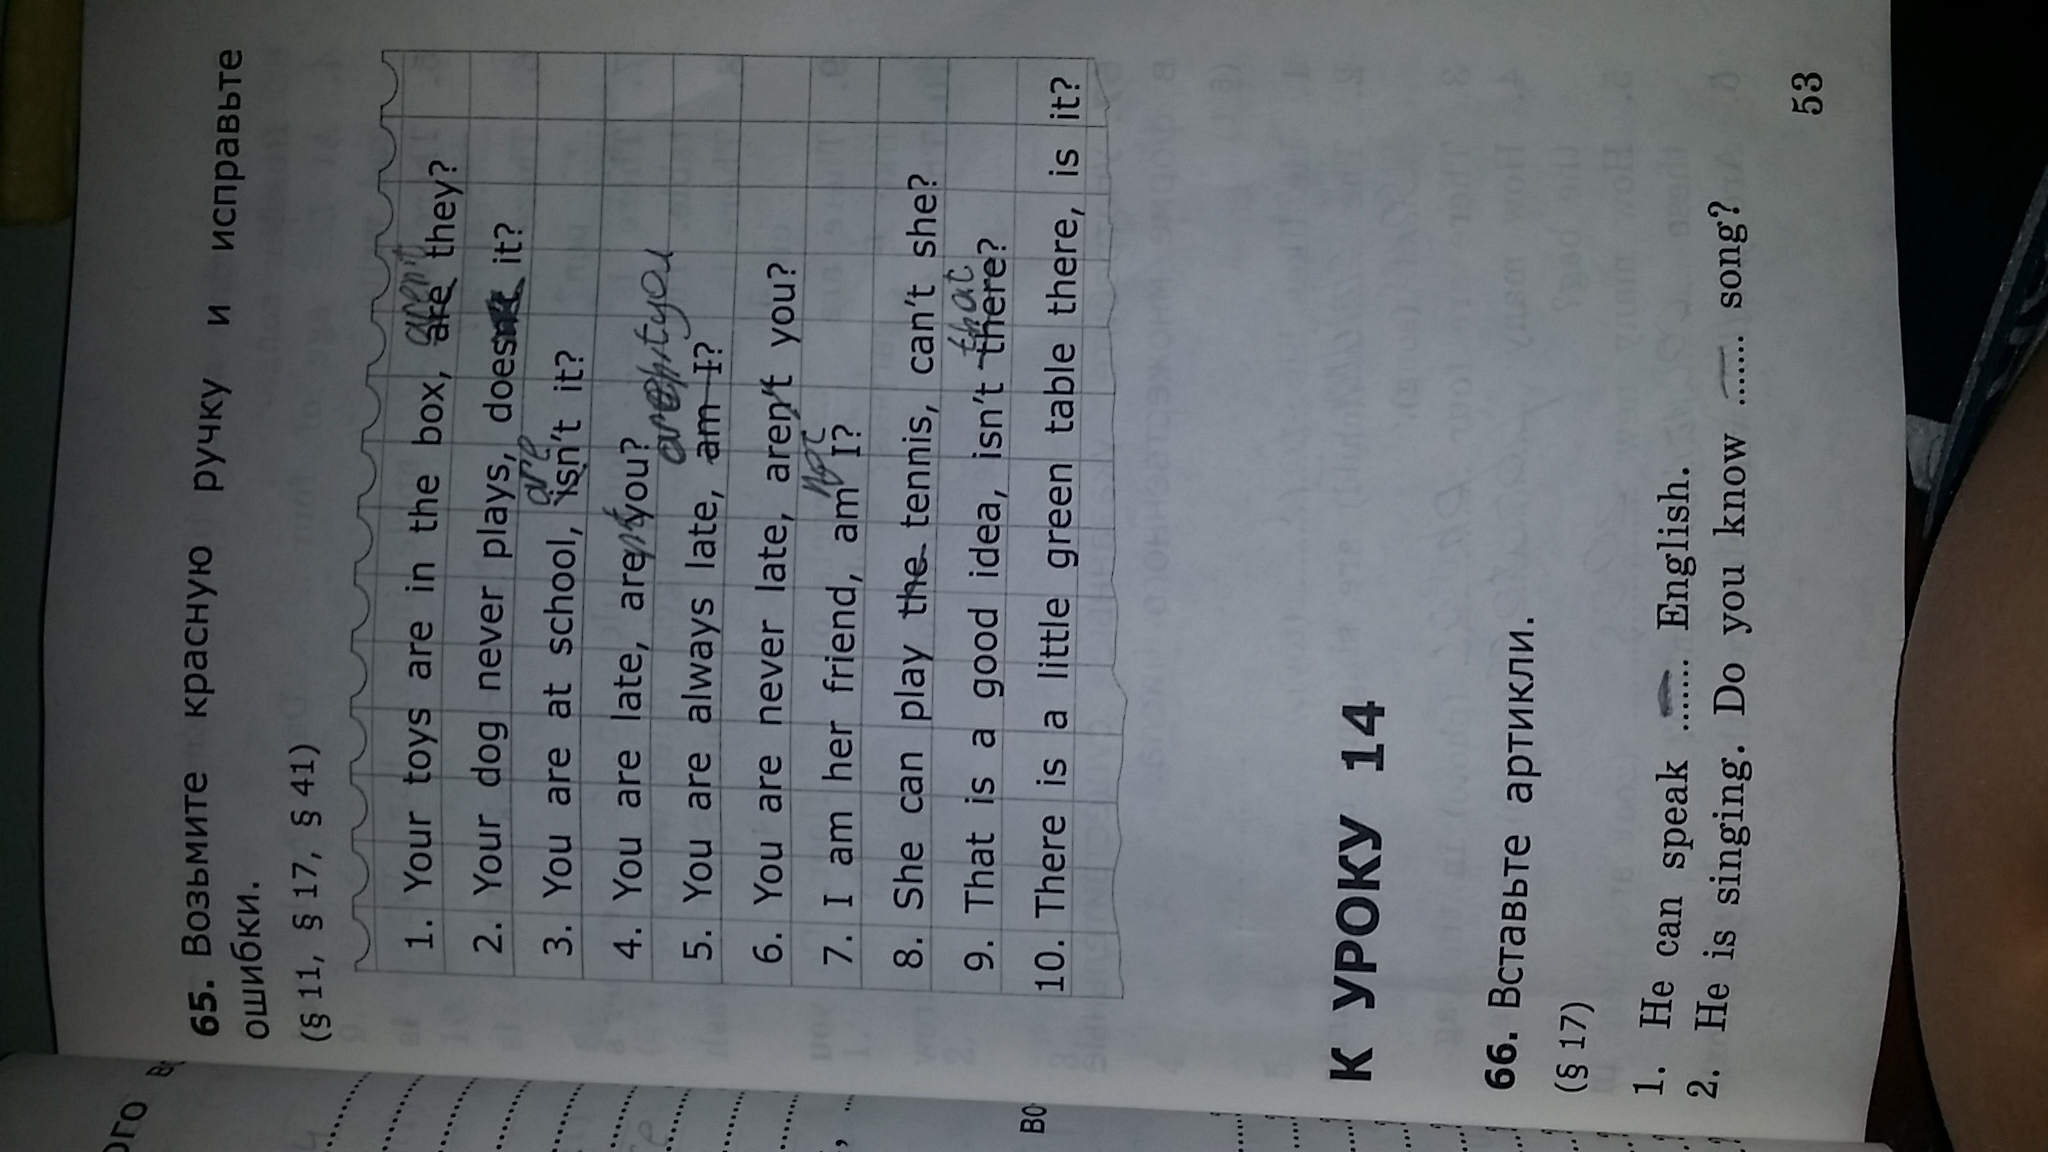 65. Возьмите красную ручку и исправьте
ошибки.
(§ 11, § 17, § 41)
aren't
1. Your toys are in the box, are they?
2. Your dog never plays, does it?
are
3. You are at school, isn't it?
4. You are late, aren't you?
aren't you
5. You are always late, am I?
6. You are never late, aren't you?
not
7. I am her friend, am I?
8. She can play the tennis, can't she?
that
9. That is a good idea, isn't there?
10. There is a little green table there, is it?
К УРОКУ 14
66. Вставьте артикли.
(§ 17)
1. He can speak ...... English.
2. He is singing. Do you know ...... song?
53
ого
во